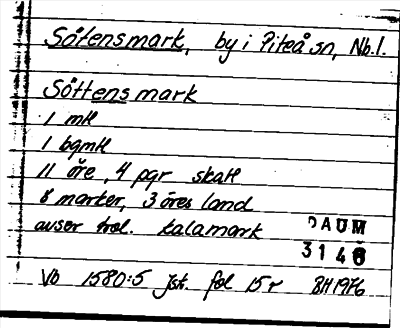 Sötensmark, by i Piteå sn, Nb.l.
Söttens mark
1 mtl
1 bgmtl
11 öre, 4 pgr skatt
8 marker, 3 öres land
avser trol. Kalamark
DAUM
3146
Vb 1580:5 Jst. fol 15r BH 1976